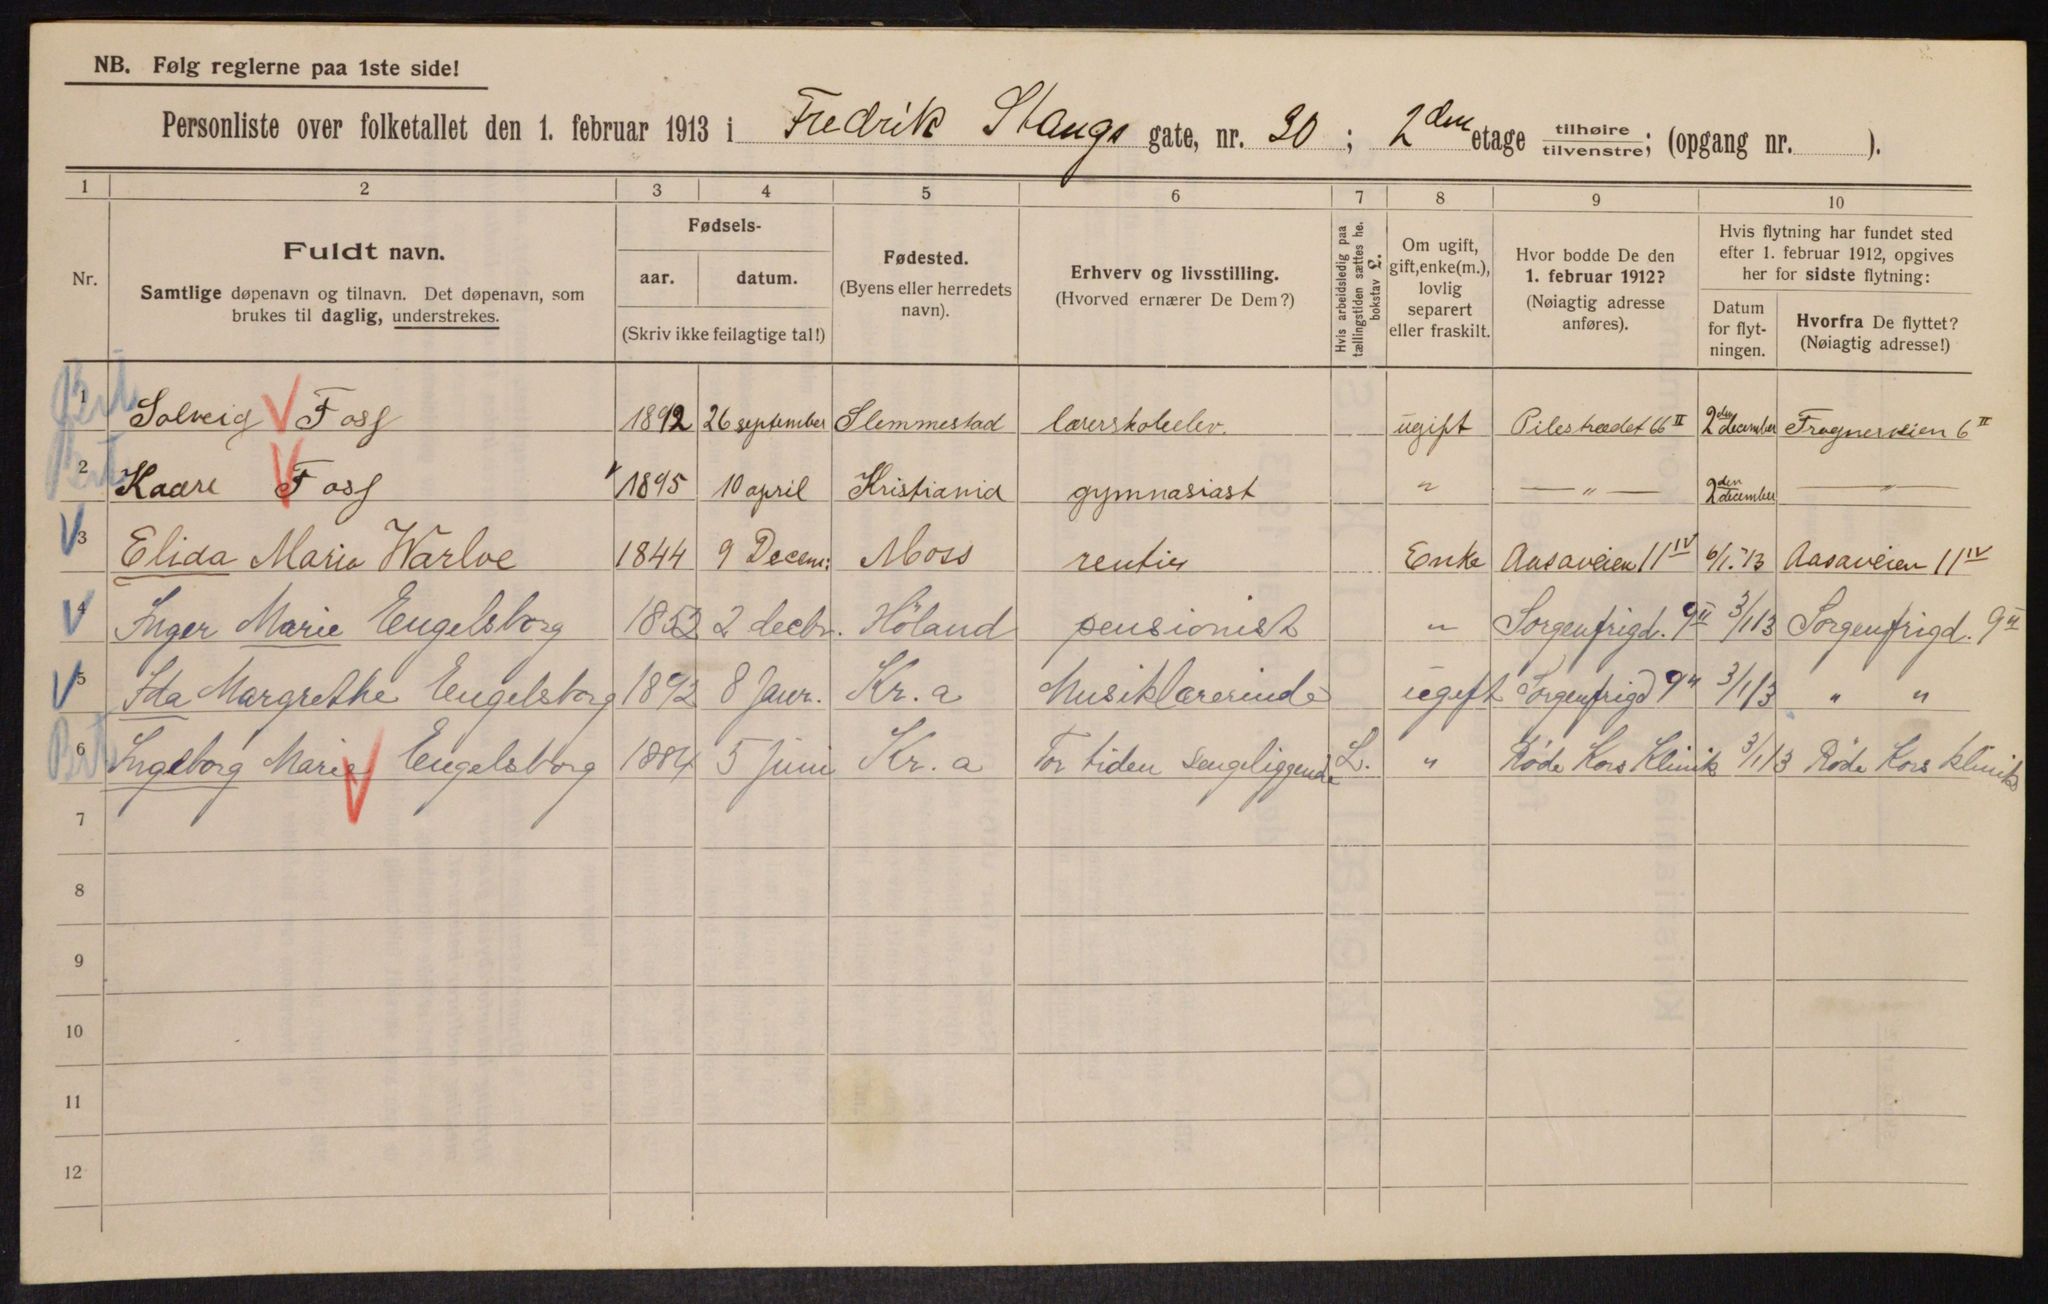 NB. Følg reglerne paa 1ste side!
Personliste over folketallet den 1. februar 1913 i Fredrik Stangs gate, nr. 30 ; 2den etage tilhøire tilvenstre; (opgang nr. ).
1 2 3 4 5 6 7 8 9 10
Nr.
Fuldt navn.
Samtlige døpenavn og tilnavn. Det døpenavn, som
brukes til daglig, understrekes.
Fødsels-
aar. datum.
(Skriv ikke feilagtige tal!)
Fødested.
(Byens eller herredets
navn).
Erhverv og livsstilling.
(Hvorved ernærer De Dem?)
Hvis arbeidsledig paa
tællingstiden sættes he.
bokstav L.
Om ugift,
gift, enke(m.),
lovlig
separert
eller fraskilt.
Hvor bodde De den
1. februar 1912?
(Nøiagtig adresse
anføres).
Hvis flytning har fundet sted
efter 1. februar 1912, opgives
her for sidste flytning:
Datum
for flyt-
ningen.
Hvorfra De flyttet?
(Nøiagtig adresse!)
1 Solveig Foss 1892 26 september Slemmestad lærerskoleelev. ugift Pilestrædet 66 II 2den december Frognerveien 6 II
2 Kaare Foss 1895 10 april Kristiania gymnasiast " — " — 2den december — " —
3 Elida Marie Warloe 1844 9 Decem: Moss rentier Enke Aasaveien 11 IV 6/1. 13 Aasaveien 11 IV
4 Inger Marie Engelsborg 1853 2 decbr. Höland pensionist " Sorgenfrigd. 9 II 3/1 13 Sorgenfrigd. 9 II
5 Ida Margrethe Engelsborg 1892 8 Janr. Kr. a Musiklærerinde ugift Sorgenfrigd 9 II 3/1 13 " "
6 Ingeborg Marie Engelsborg 1884 5 Juni Kr. a For tiden sengeliggende L. " Røde Kors Klinik 3/1 13 Røde Kors klinik
7
8
9
10
11
12